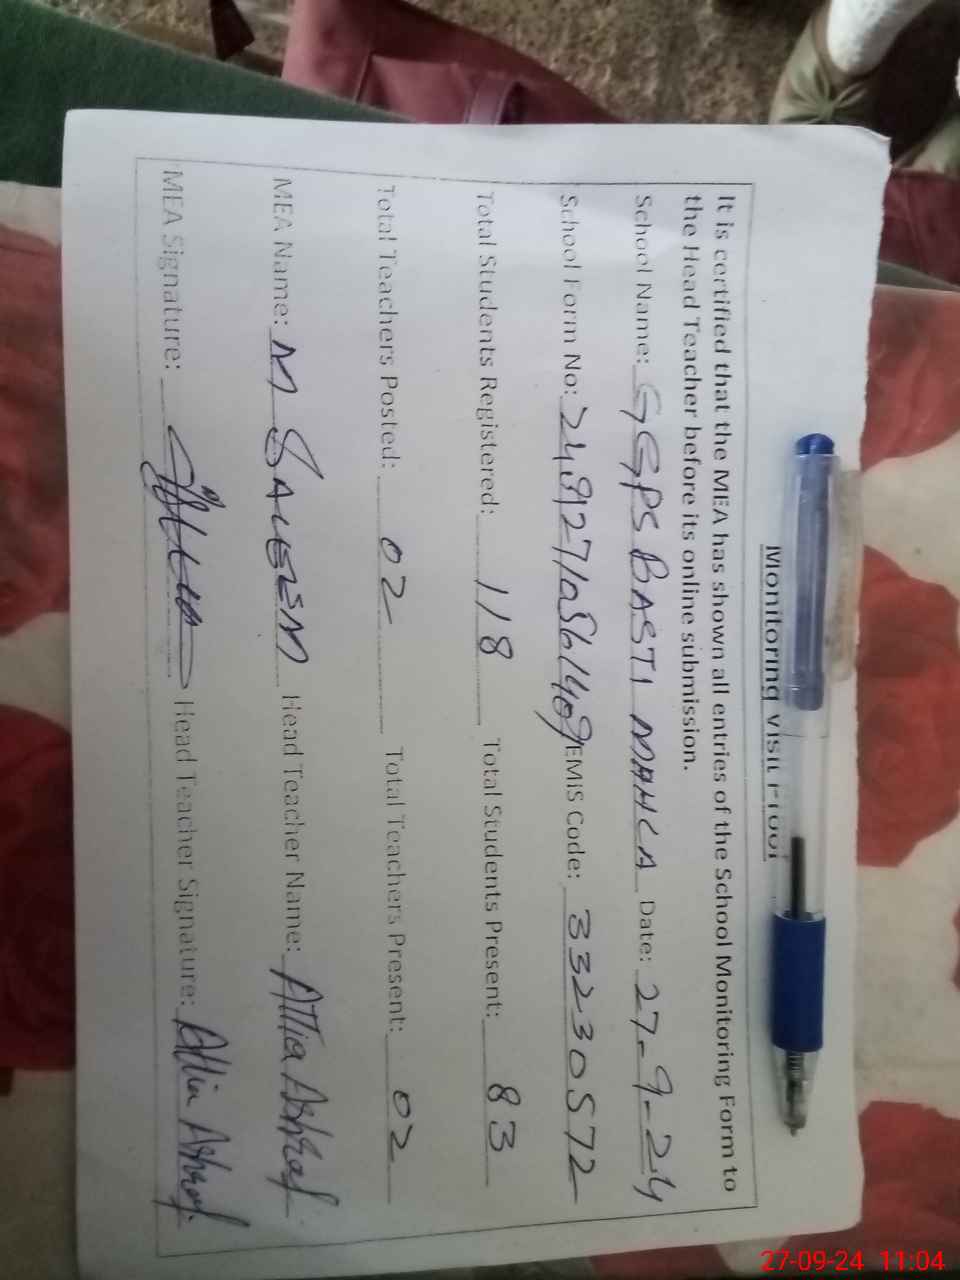 Monitoring Visit Proof
It is certified that the MEA has shown all entries of the School Monitoring Form to
the Head Teacher before its online submission.
School Name: GGPS BASTI MAHLA Date: 27-9-24
School Form No: EMIS Code: 33230572
Total Students Registered: 118 Total Students Present: 83
Total Teachers Posted: 02 Total Teachers Present: 02
MEA Name: M SALEEM Head Teacher Name: Attia Ashraf
MEA Signature: Head Teacher Signature: Attia Ashraf
27-09-24 11:04